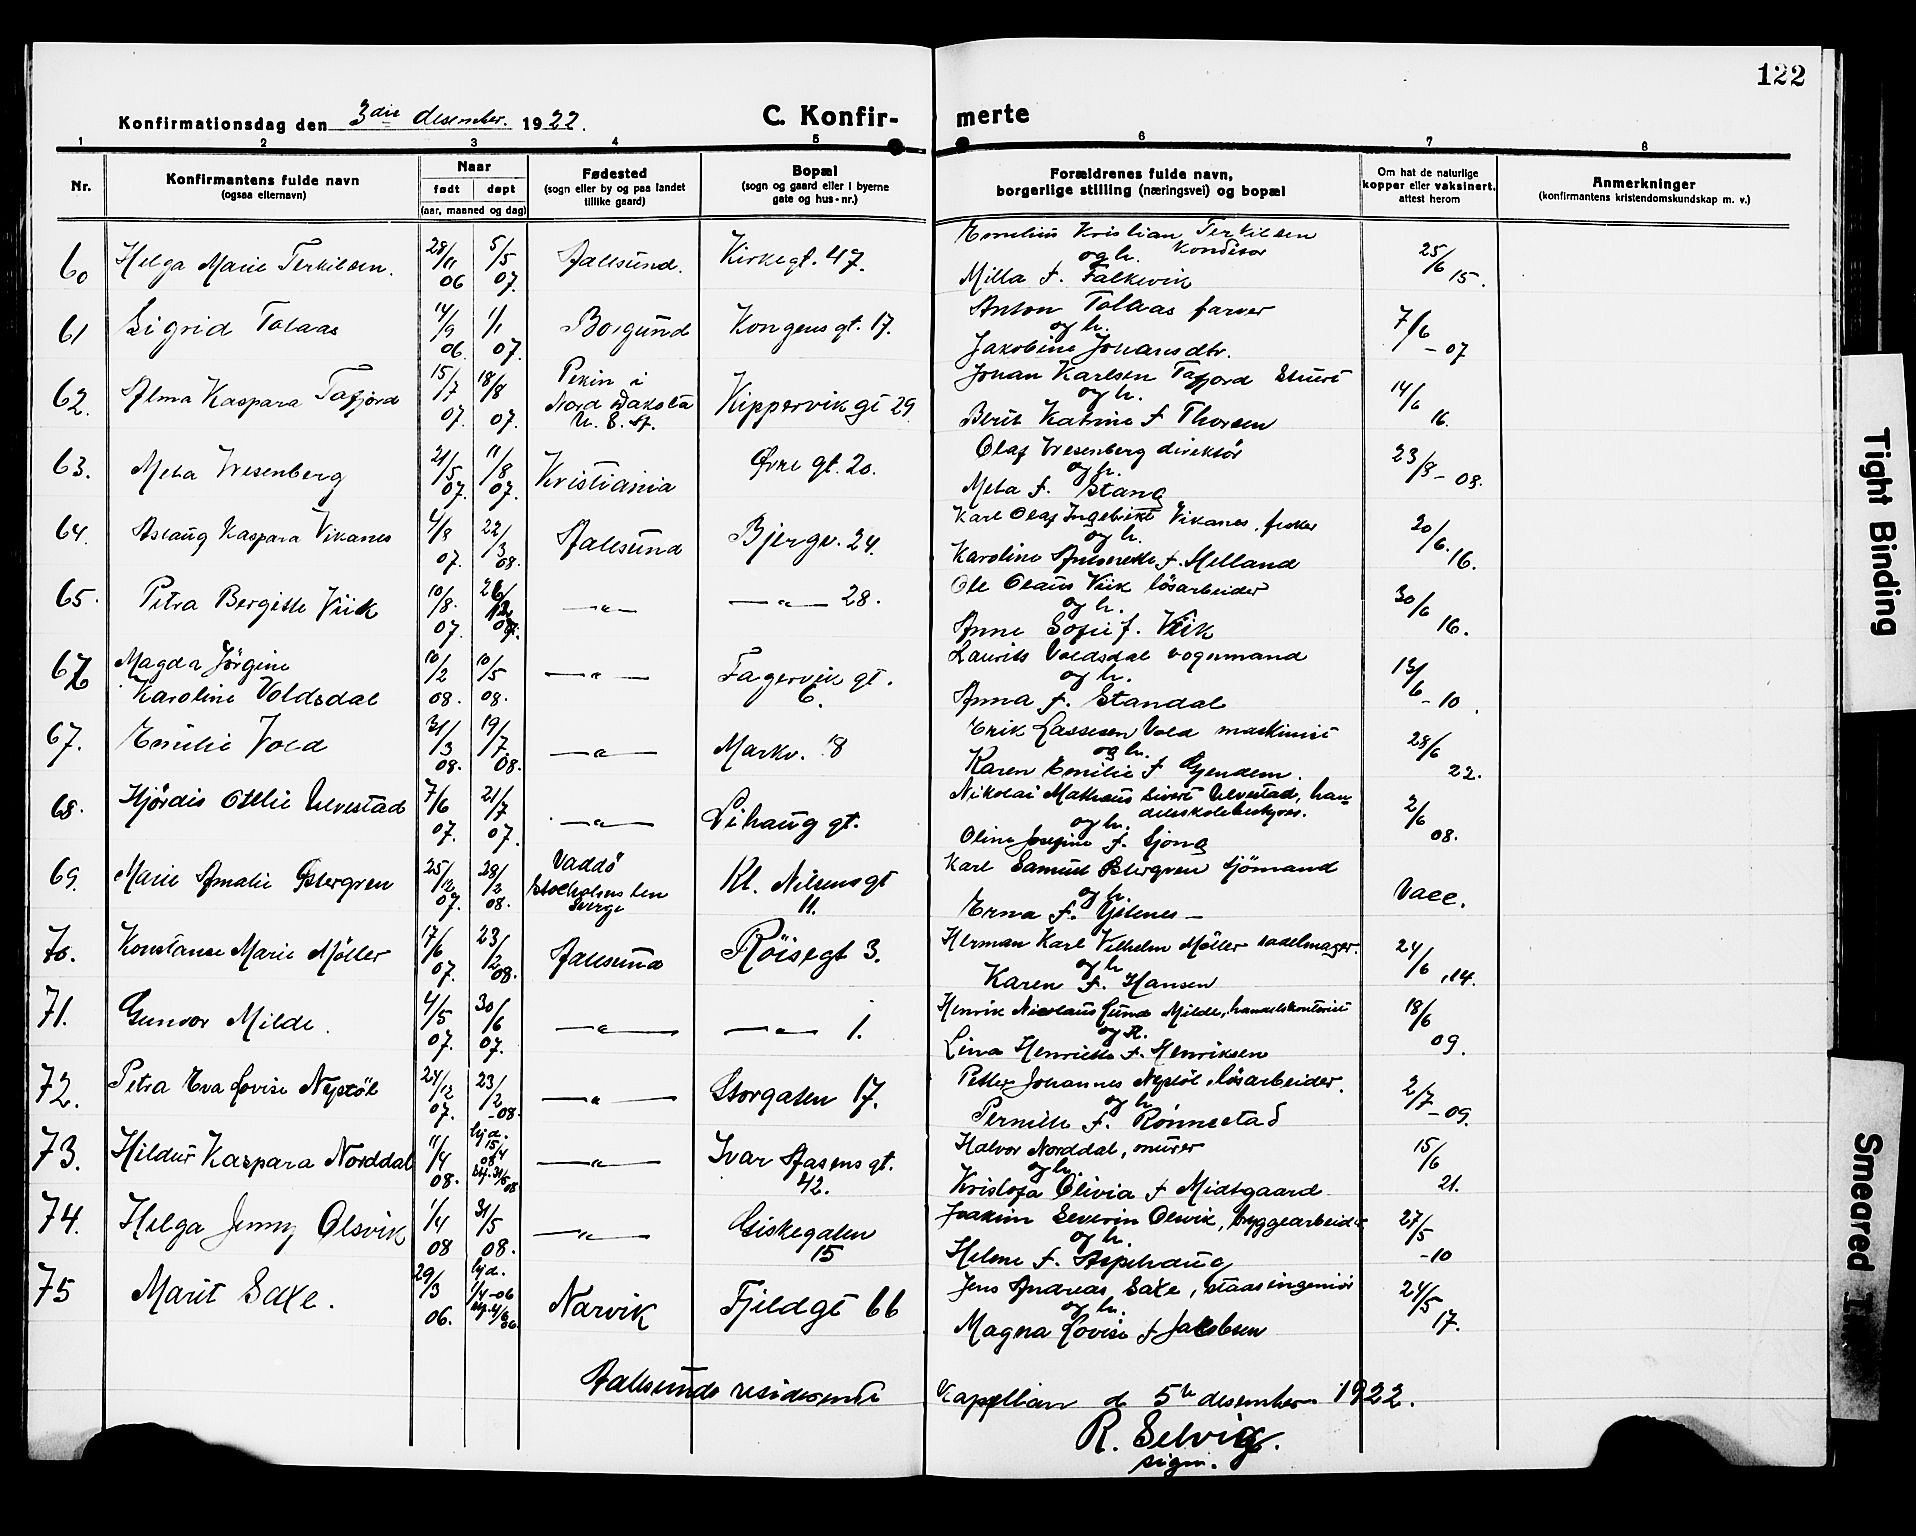 122
Konfirmationsdag den 3die desember. 1922.
C. Konfirmerte
1 2 3 4 5 6 7 8
Nr.
Konfirmantens fulde navn
(ogsaa efternavn)
Naar
født døpt
(aar, maaned og dag)
Fødested
(sogn eller by og paa landet
tillike gaard)
Bopæl
(sogn og gaard eller i byerne
gate og hus-nr.)
Forældrenes fulde navn,
borgerlige stilling (næringsvei) og bopæl
Om hat de naturlige
kopper eller vaksinert,
attest herom
Anmerkninger
(konfirmantens kristendomskundskap m. v.)
60 Helga Marie Terkilsen. 28/11 06 5/5 07. Aalesund. Kirkegt. 47. Emilius Kristian Terkilsen
Konditor
og h.
Milla f. Falkevik 25/6 15.
61 Sigrid Tolaas 14/9 06. 1/1 07. Borgund Kongens gt. 17. Anton Tolaas farver
og h.
Jakobine Johansdtr. 7/6 - 07
62. Alma Kaspara Tafjord 15/7 07. 18/8 07. Pekin i
Nord Dakota
U. S. A. Kippervik gt 29 Johan Karlsen Tafjord
og h.
Berit Katrine f Thorsen 14/6 16.
63. Meta Wesenberg 21/5 07. 11/8 07. Kristiania Øvre gt. 20. Olaf Wesenberg direktör
og h.
Meta f. Stang 23/8 - 08.
64. Aslaug Kaspara Vikanes 4/8 07. 22/3 08. Aalesund Bjergv. 24. Karl Olaf Ingebrikt Vikanes, fisker
og h.
Karoline f. Helland 20/6. 16.
65. Petra Bergitte Viik 10/8. 07. 26/12 07. -"- -"- 28. Ole Olaus Viik lösarbeider
og h.
Anne Sofie f. Viik 30/6 16.
66 Magda Jörgine
Karoline Voldsdal 10/2 08. 10/5 08. -"- Fagervik gt.
6. Laurits Voldsdal vognmand
og h.
Anna f. Standal 13/6 - 10.
67. Emilie Vold 31/3 08. 19/7. 08. -"- Markv. 18 Erik Lassesen Vold maskinist
og h.
Karen Emilie f Gjendem. 28/6 22.
68. Hjördis Otilie Ulvestad 7/6 07. 21/7 07. -"- Lihaug gt. Nikolai Mathæus Sivert Ulvestad, han-
delsskolebestyrer.
og h.
Oline Josefine f. Sjong 2/6 08.
69. Marie Amalie Østergren 25/12 07. 28/2 08. Vaddö
Stocholms len
Sverge Kl. Nilsens gt
11. Karl Samuel Østergren sjömand
og h.
Erna f. Gjelsnes - Vacc.
70. Konstanse Marie Møller 17/6 07. 23/2 08. Aalesund Röisegt 3. Herman Karl Vilhelm Møller sadelmager.
og h
Karen f. Hansen 24/6, 14.
71. Gunvor Milde. 4/5 07. 30/6 07. -"- -"- 1. Henrik Nicolaus Lund Milde, handelskontorist
og h.
Lina Henriette f. Henriksen 18/6 09.
72. Petra Eva Lovise Neptöl 24/12 07. 23/2 - 08. -"- Storgaten 17. Petter Johannes Neptöl, lösarbeider.
og h
Pernille f. Rønnestad 2/7 - 09.
73. Hildur Kaspara Norddal 11/4 08. hjd.
15/4 08
stf. 31/5 08 -"- Ivar Aasens gt.
42. Halvor Norddal, murer
og h.
Kristofa Olivia f Midtgaard 15/6 21.
74. Helga Jenny Olsvik 1/4 08 31/5 08. -"- Giskegaten
15 Joakim Severin Olsvik, byggearbeider
og h.
Helene f. Aspehaug 27/5 - 10
75 Marit Saxe. 29/3 06. hjd.
1/4 - 06
Narvik Fjeldgt 66 Jens Andreas Saxe, staasingeniör
og h.
Magna Lovise f Jakobsen 24/5 17.
Aalesunds residerende Kapellan d 5te desember 1922.
R. Selvig.
sign.
Tight Binding
Smeared I